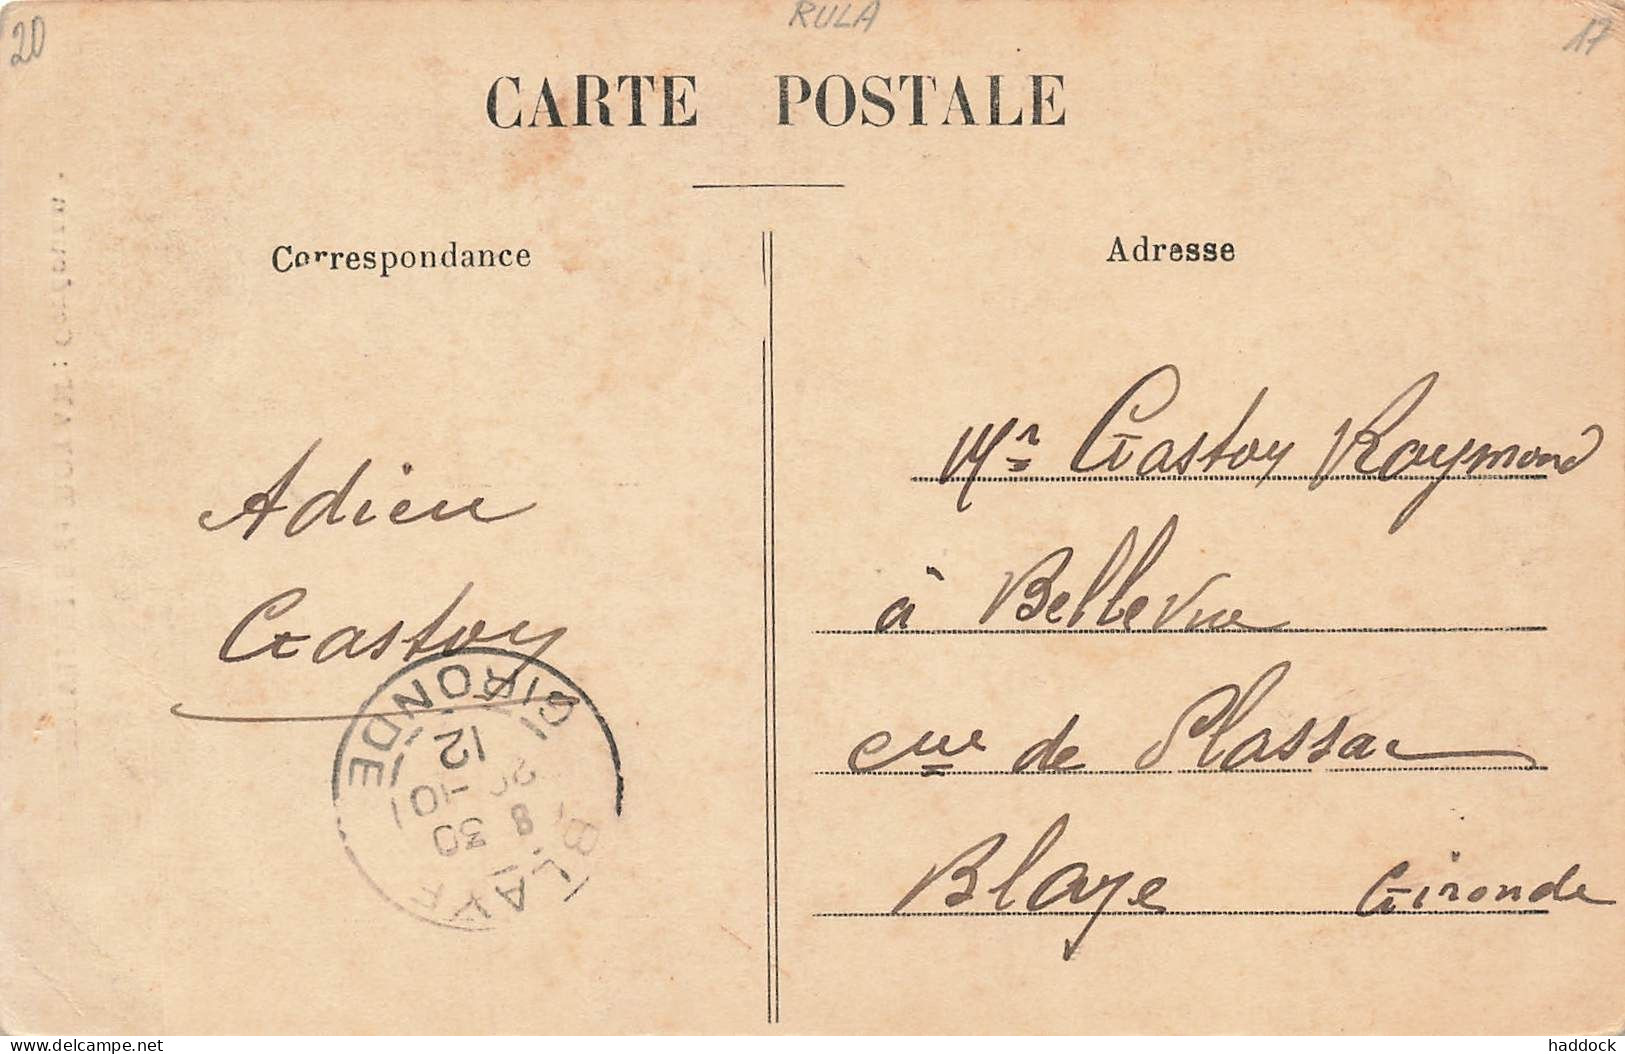 20
RULA
17
CARTE POSTALE
Correspondance
Adresse
Adieu
Gastoy
Mr Gastoy Raymond
à Bellevue
Cne de Plassac
Blaye Gironde
BLAYE
GIRONDE
8 30
-10
12
delcampe.net
haddock